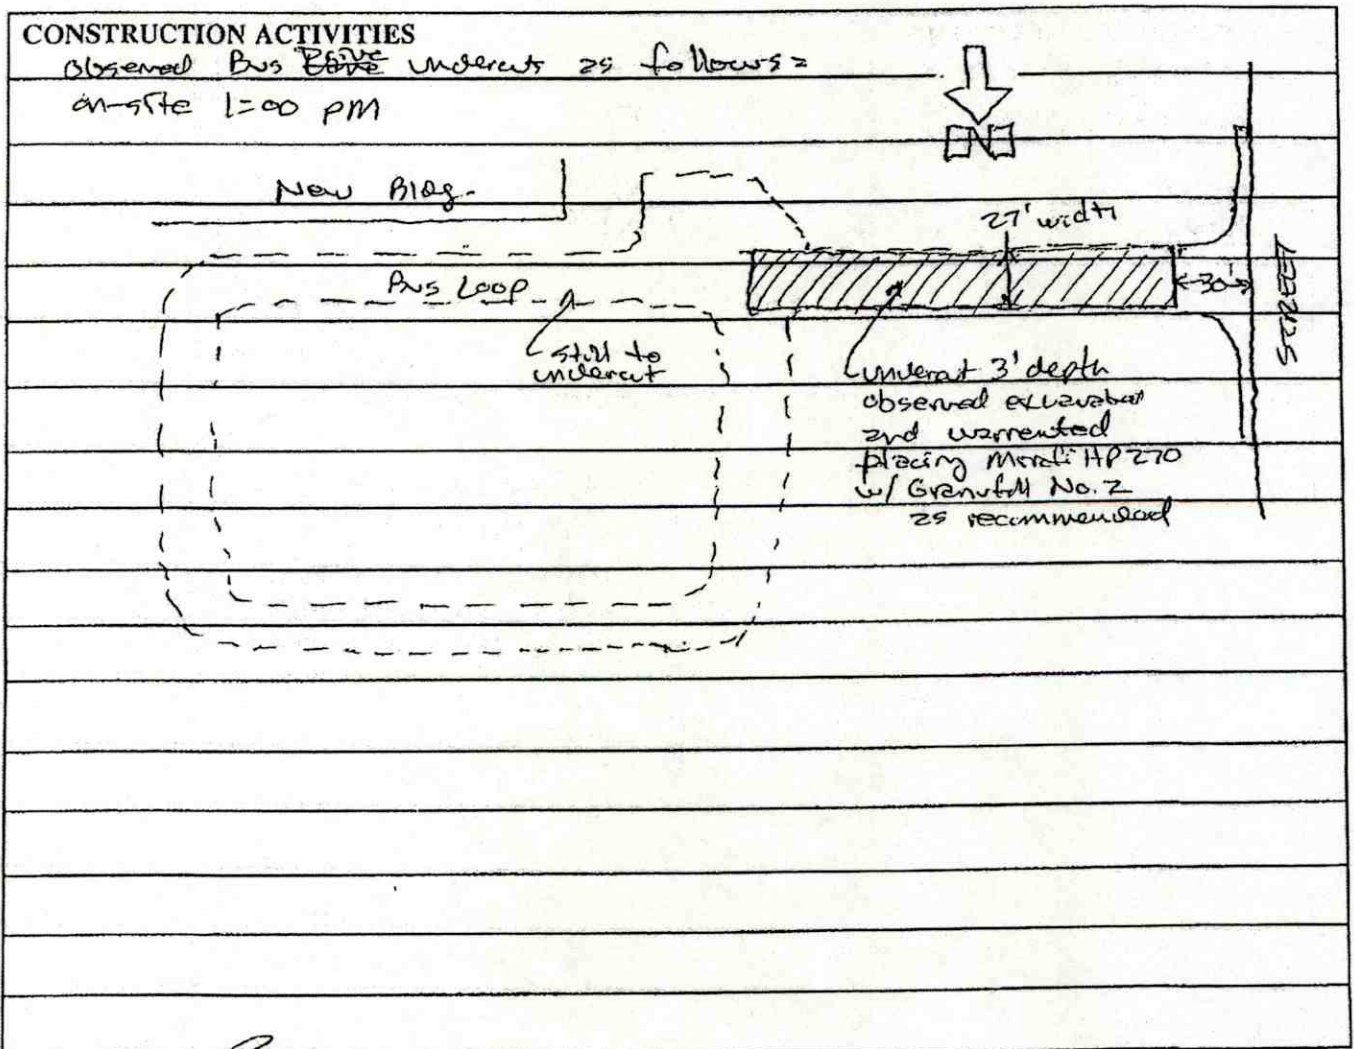 CONSTRUCTION ACTIVITIES
Observed Bus Drive undercuts as follows:
on-site 1:00 PM
N
New Bldg.
27' width
Bus Loop
30'
STREET
still to
undercut
undercut 3' depth
observed excavation
and warrented
placing Mirafi HP 270
w/ Granufill No. 2
as recommended